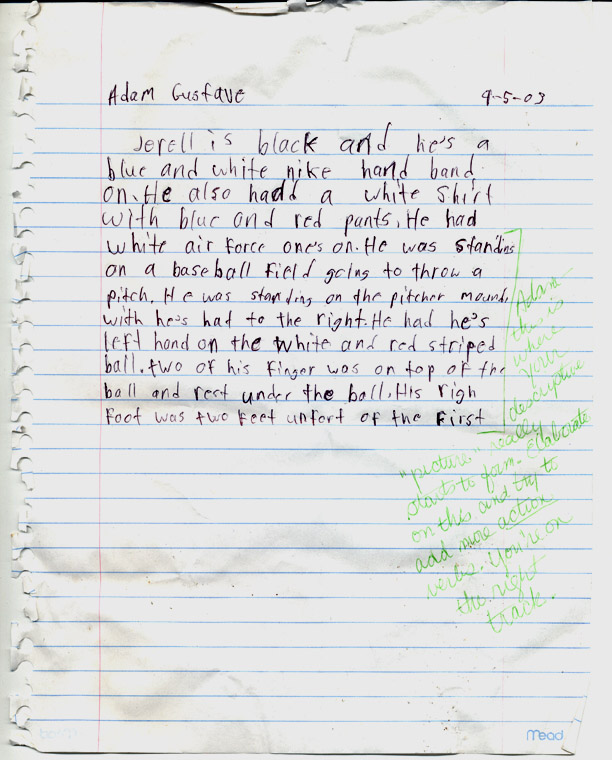 Adam Gustave 9-5-03
Jerell is black and he's a
blue and white nike hand band
on. He also hadd a white Shirt
with blue and red pants. He had
white air force one's on. He was standins
on a baseball field going to throw a
pitch. He was standing on the pitcher mound,
with he's had to the right. He had he's
left hand on the white and red striped
ball. two of his finger was on top of the
ball and rest under the ball. His righ
foot was two feet unfort of the first
Adam-
this is
where
your
descriptive
"picture" really
starts to form. Elaborate
on this and try to
add more action
verbs. You're on
the right
track.
Mead